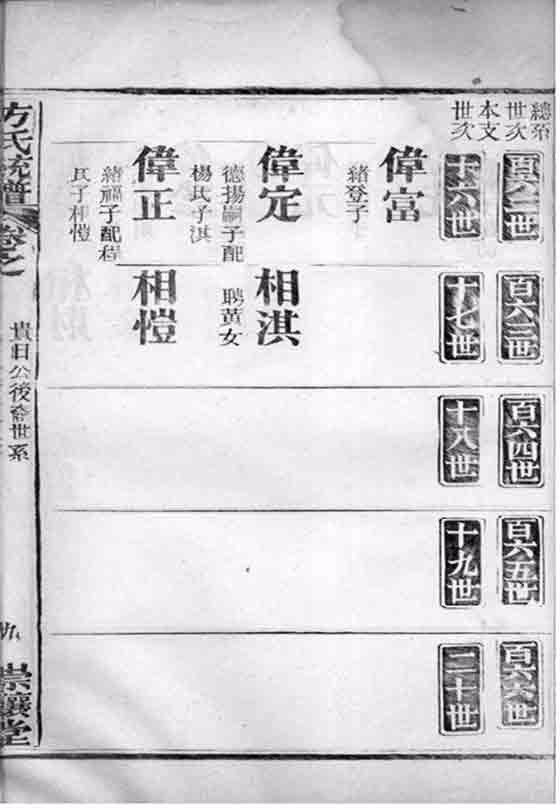 總系
世次
本支
世次
百六二世
十六世
偉富
緒登子
偉定
德揚嗣子配
楊氏子淇
偉正
緒福子配程
氏子相愷
百六三世
十七世
相淇
聘黃女
相愷
百六四世
十八世
百六五世
十九世
百六六世
二十世
方氏統譜
卷之
貴日公後裔世系